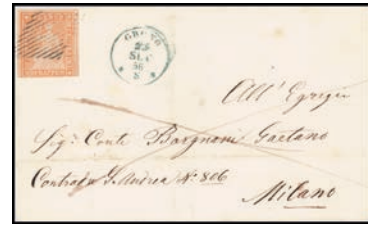 23
56
All' Egregio
Sig.r Conte Bargnani Gaetano
Contrada S. Andrea N.º 806
Milano